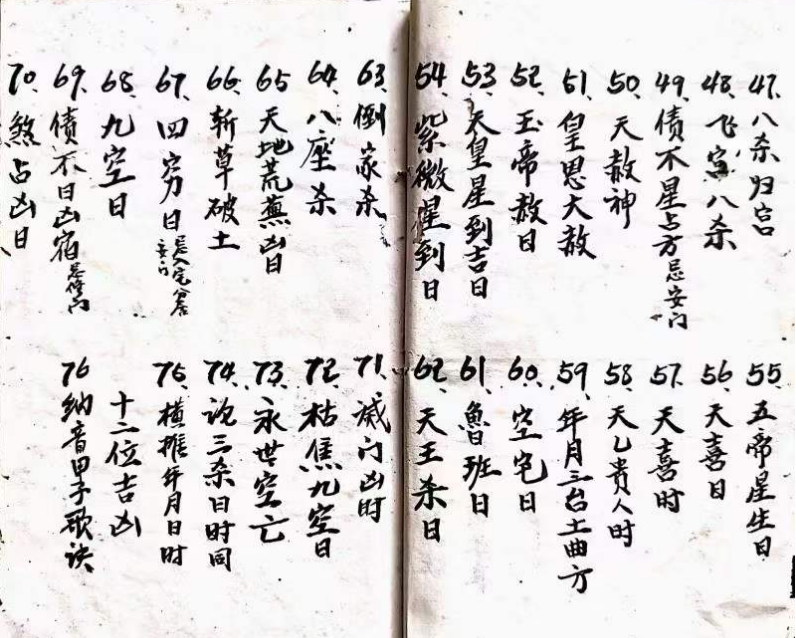 47、八杀归宫
48、飞宫八杀
49、债不星占方忌安门
50、天赦神
51、皇恩大赦
52、玉帝赦日
53、天皇星到吉日
54、紫微星到日
55、五帝星生日
56、天喜日
57、天喜时
58、天乙贵人时
59、年月三台土曲方
60、空宅日
61、鲁班日
62、天王杀日
63、倒家杀
64、八座杀
65、天地荒蕪凶日
66、斩草破土
67、四穷日忌入宅
安门
68、九空日
69、债不日凶宿忌修门
70、煞占凶日
71、滅门凶时
72、枯焦九空日
73、永世空亡
74、论三杀日时同
75、横推年月日时
十二位吉凶
76 纳音甲子歌诀